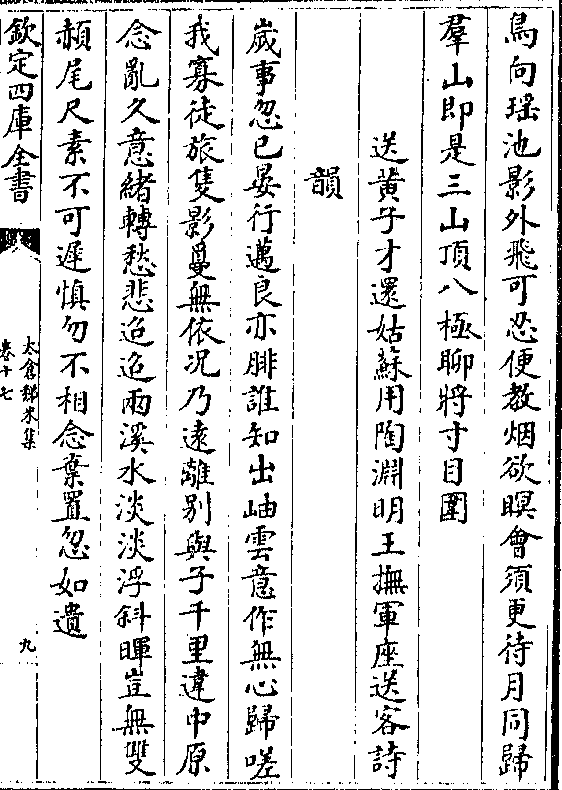 鳥向瑶池影外飛可忍便教烟欲暝會須更待月同歸
羣山即是三山頂八極聊將寸目圍
送黄子才還姑蘇用陶淵明王撫軍座送客詩
韻
歲事忽已晏行邁良亦腓誰知出岫雲意作無心歸嗟
我寡徒旅隻影曼無依况乃遠離别與子千里違中原
念亂久意緒轉愁悲迢迢兩溪水淡淡浮斜暉豈無雙
赬尾尺素不可遲慎勿不相念棄置忽如遺
欽定四庫全書
太倉稊米集
卷十七
九